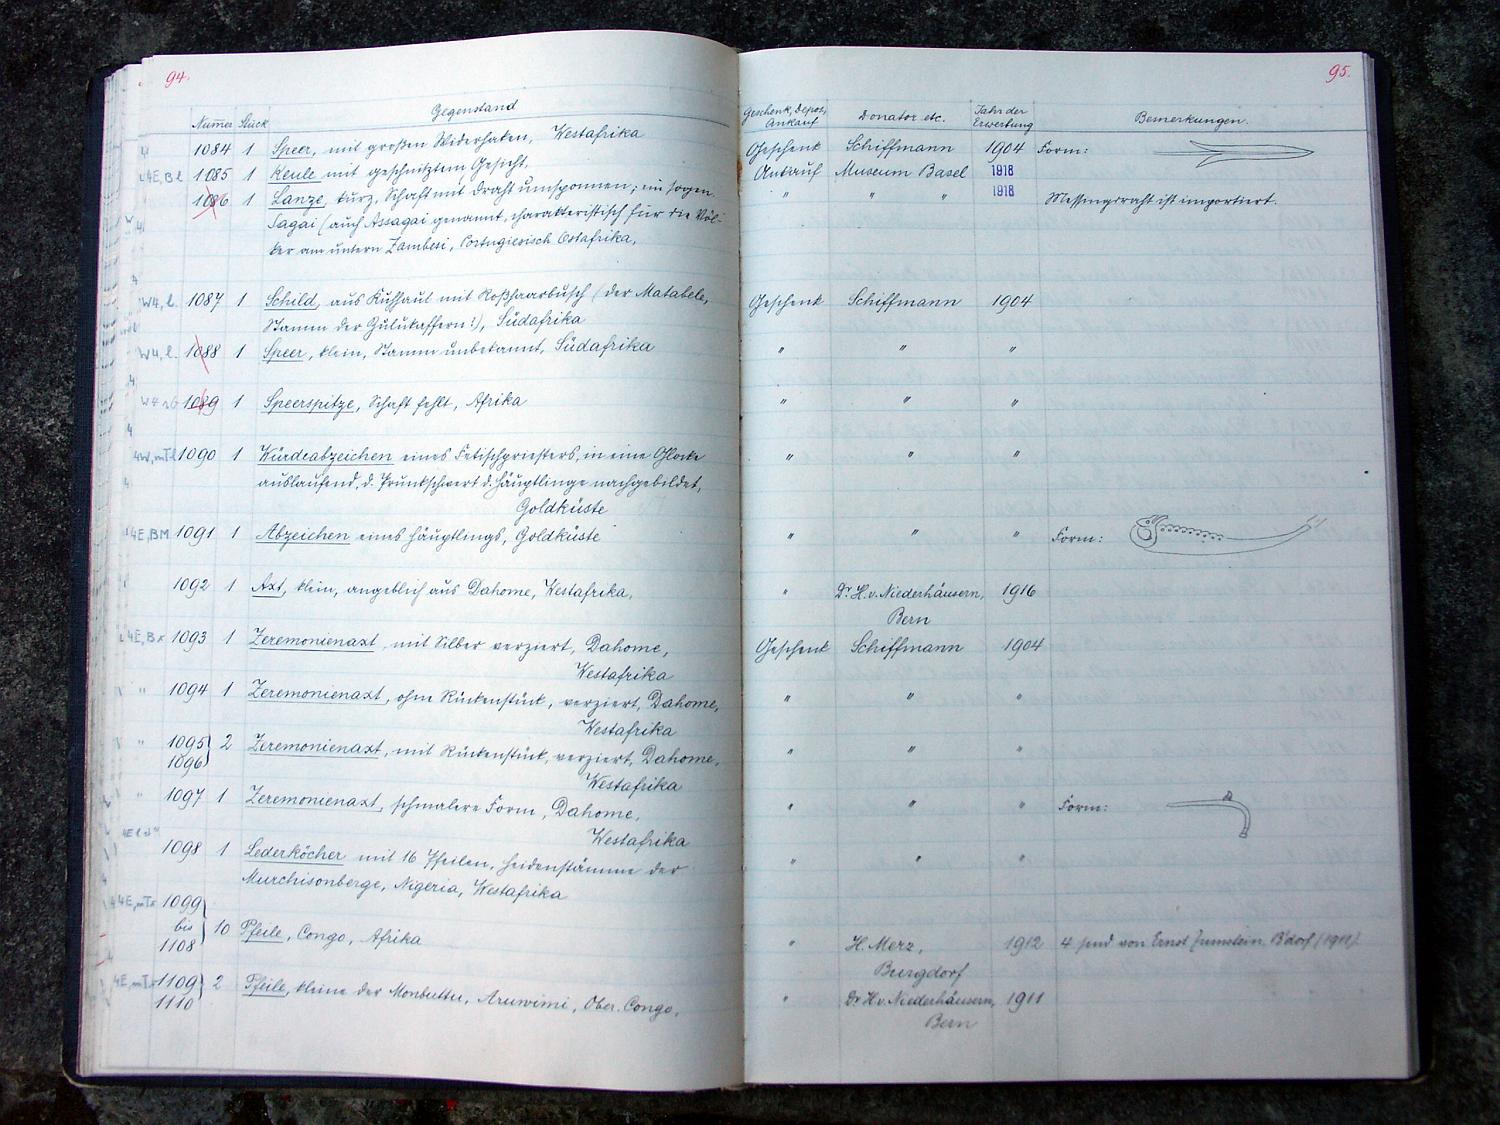 94.
Numer Stück Gegenstand
1084 1 Speer, mit großen Widerhaken, Westafrika
4E, Bl 1085 1 Keule mit geschnitztem Gesicht.
1086 1 Lanze, kurz, Schaft mit Draht umsponnen; im sogen.
Sagai (auch Assagai genannt, charakteristisch für die Völ-
ker am untern Zambesi, Portugiesisch Ostafrika,
W4, l. 1087 1 Schild, aus Kuhhaut mit Roßhaarbusch (der Matabele,
Stamm der Zulukaffern!), Südafrika
W4, l. 1088 1 Speer, klein, Stamm unbekannt, Südafrika
1089 1 Speerspitze, Schaft fehlt, Afrika
1090 1 Würdeabzeichen eines Fetischpriesters, in eine Glocke
auslaufend, d. Prunkschwert d. Häuptlinge nachgebildet,
Goldküste
4E, BM 1091 1 Abzeichen eines Häuptlings, Goldküste
1092 1 Axt, klein, angeblich aus Dahome, Westafrika,
4E, Bx 1093 1 Zeremonienaxt, mit Silber verziert, Dahome,
Westafrika
" 1094 1 Zeremonienaxt, ohne Rückenstück, verziert, Dahome,
Westafrika
" 1095 } 2 Zeremonienaxt, mit Rückenstück, verziert, Dahome,
1096
Westafrika
" 1097 1 Zeremonienaxt, schmalere Form, Dahome,
Westafrika
1098 1 Lederköcher mit 16 Pfeilen, Heidenstämme der
Murchisonberge, Nigeria, Westafrika
1099
bis } 10 Pfeile, Congo, Afrika
1108
1109 } 2 Pfeile, kleine der Monbuttu, Aruwimi, Ober. Congo,
1110
95.
Geschenk, Depos, Ankauf Donator etc. Jahr der Erwerbung Bemerkungen.
Geschenk Schiffmann 1904 Form:
Ankauf Museum Basel 1918
" " " 1918 Messingdraht ist importiert.
Geschenk Schiffmann 1904
" " "
" " "
" " "
" " " Form:
" Dr. H. v. Niederhäusern, 1916
Bern
Geschenk Schiffmann 1904
" " "
" " "
" " " Form:
" " "
" H. Merz, 1912 4 sind von Ernst Zumstein, B'dorf (1911)
Burgdorf
" Dr. H. v. Niederhäusern, 1911
Bern